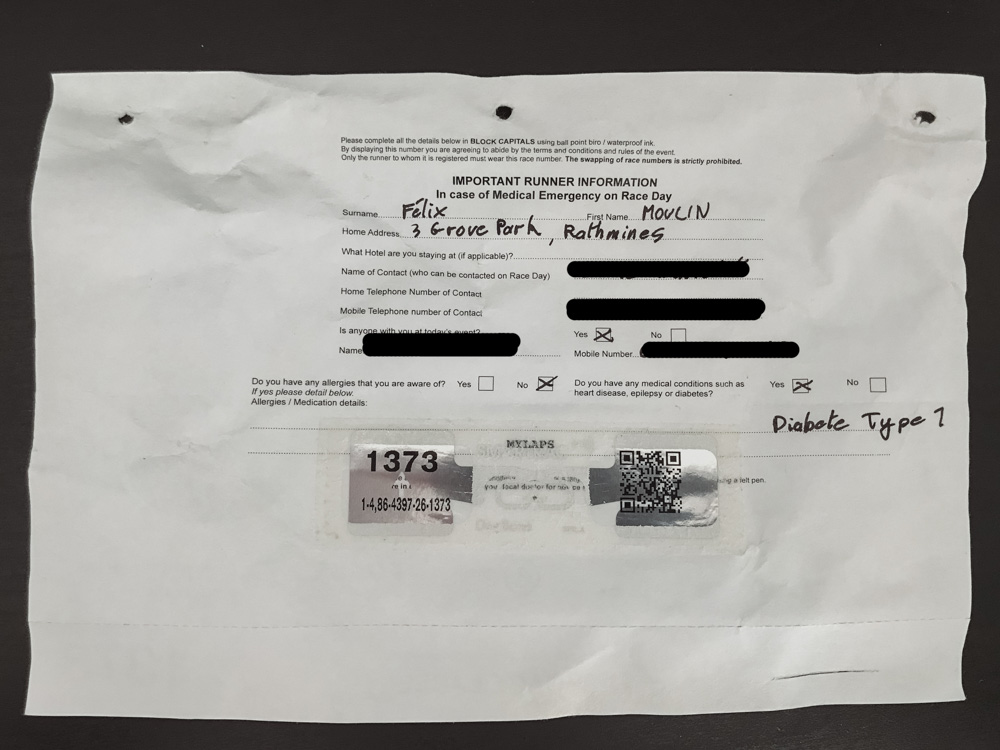 Please complete all the details below in BLOCK CAPITALS using ball point biro / waterproof ink.
By displaying this number you are agreeing to abide by the terms and conditions and rules of the event.
Only the runner to whom it is registered must wear this race number. The swapping of race numbers is strictly prohibited.
IMPORTANT RUNNER INFORMATION
In case of Medical Emergency on Race Day
Surname Félix First Name MOULIN
Home Address 3 Grove Park, Rathmines
What Hotel are you staying at (if applicable)?
Name of Contact (who can be contacted on Race Day)
Home Telephone Number of Contact
Mobile Telephone number of Contact
Is anyone with you at today's event? Yes No
Name Mobile Number
Do you have any allergies that you are aware of? Yes No Do you have any medical conditions such as Yes No
If yes please detail below. heart disease, epilepsy or diabetes?
Allergies / Medication details:
Diabete Type 1
MYLAPS
1373
you local doctor for
a felt pen.
1-4,86-4397-26-1373